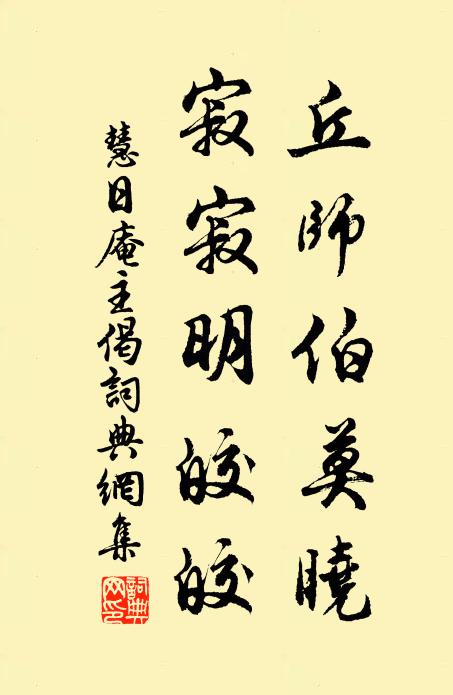 丘師伯莫曉
寂寂明皎皎
慧日庵主偈詞典網集
詞典網印